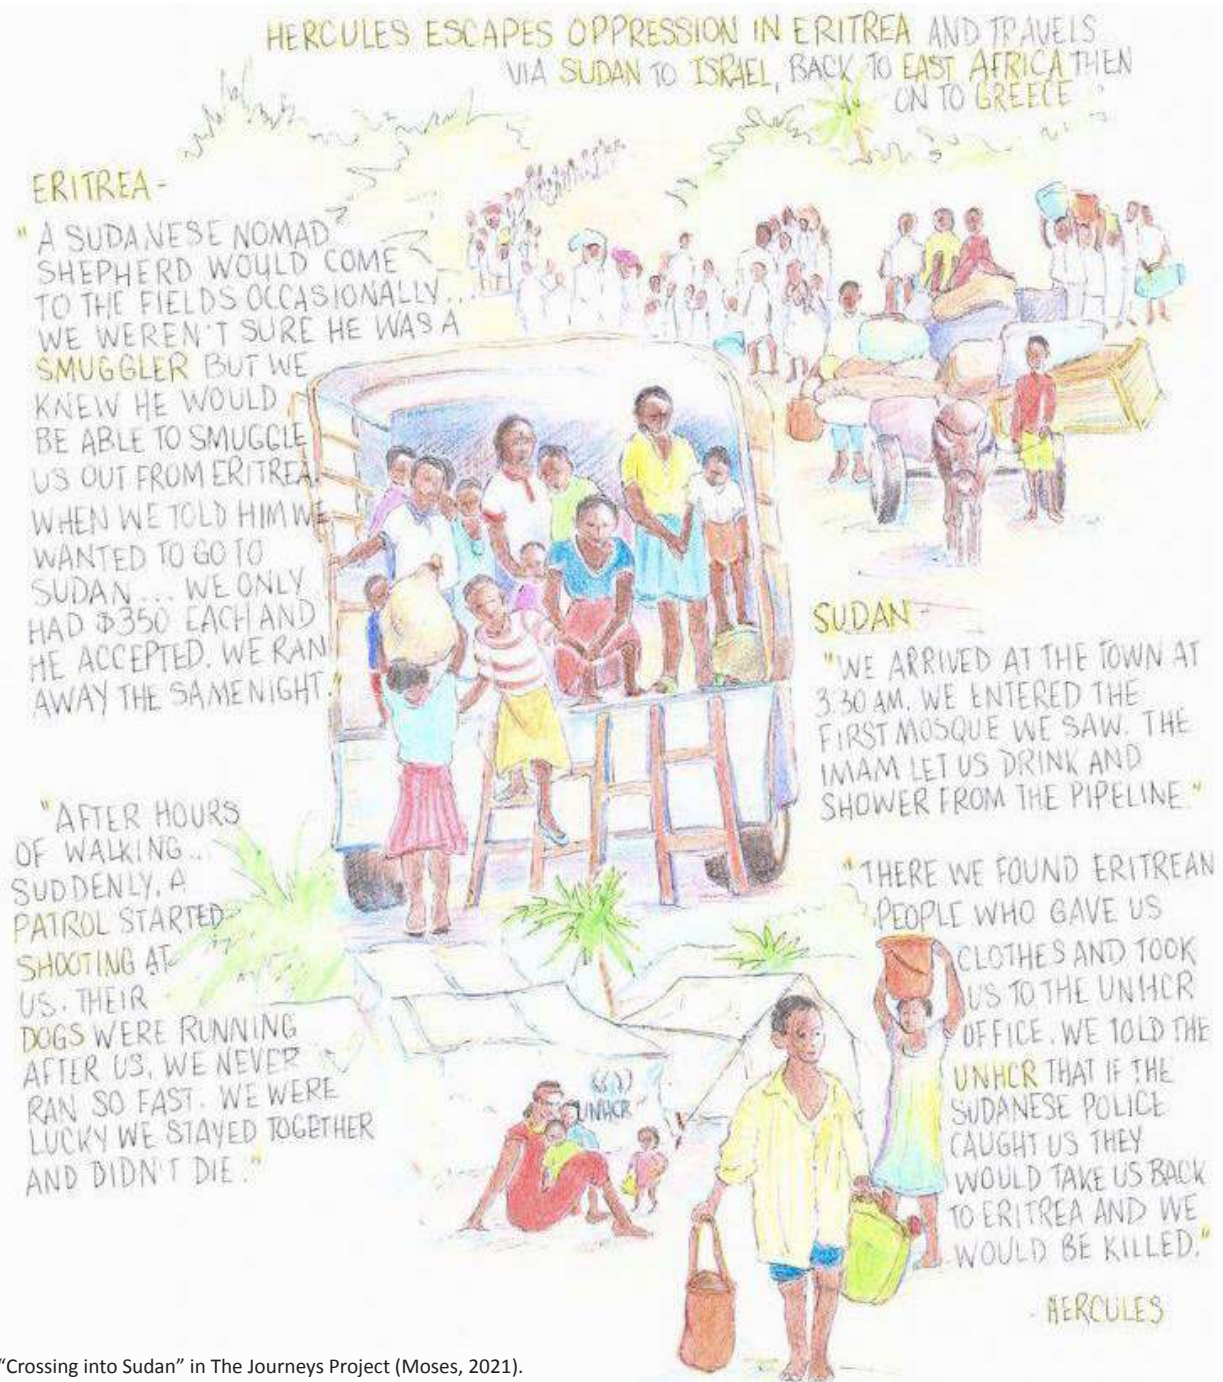 HERCULES ESCAPES OPPRESSION IN ERITREA AND TRAVELS
VIA SUDAN TO ISRAEL, BACK TO EAST AFRICA THEN
ON TO GREECE
ERITREA-
"A SUDANESE NOMAD
SHEPHERD WOULD COME
TO THE FIELDS OCCASIONALLY...
WE WEREN'T SURE HE WAS A
SMUGGLER BUT WE
KNEW HE WOULD
BE ABLE TO SMUGGLE
US OUT FROM ERITREA.
WHEN WE TOLD HIM WE
WANTED TO GO TO
SUDAN... WE ONLY
HAD $350 EACH AND
HE ACCEPTED. WE RAN
AWAY THE SAME NIGHT."
"AFTER HOURS
OF WALKING...
SUDDENLY, A
PATROL STARTED
SHOOTING AT
US. THEIR
DOGS WERE RUNNING
AFTER US. WE NEVER
RAN SO FAST. WE WERE
LUCKY WE STAYED TOGETHER
AND DIDN'T DIE."
SUDAN-
"WE ARRIVED AT THE TOWN AT
3.30 AM. WE ENTERED THE
FIRST MOSQUE WE SAW. THE
IMAM LET US DRINK AND
SHOWER FROM THE PIPELINE."
"THERE WE FOUND ERITREAN
PEOPLE WHO GAVE US
CLOTHES AND TOOK
US TO THE UNHCR
OFFICE. WE TOLD THE
UNHCR THAT IF THE
SUDANESE POLICE
CAUGHT US THEY
WOULD TAKE US BACK
TO ERITREA AND WE
WOULD BE KILLED."
- HERCULES
UNHCR
"Crossing into Sudan" in The Journeys Project (Moses, 2021).